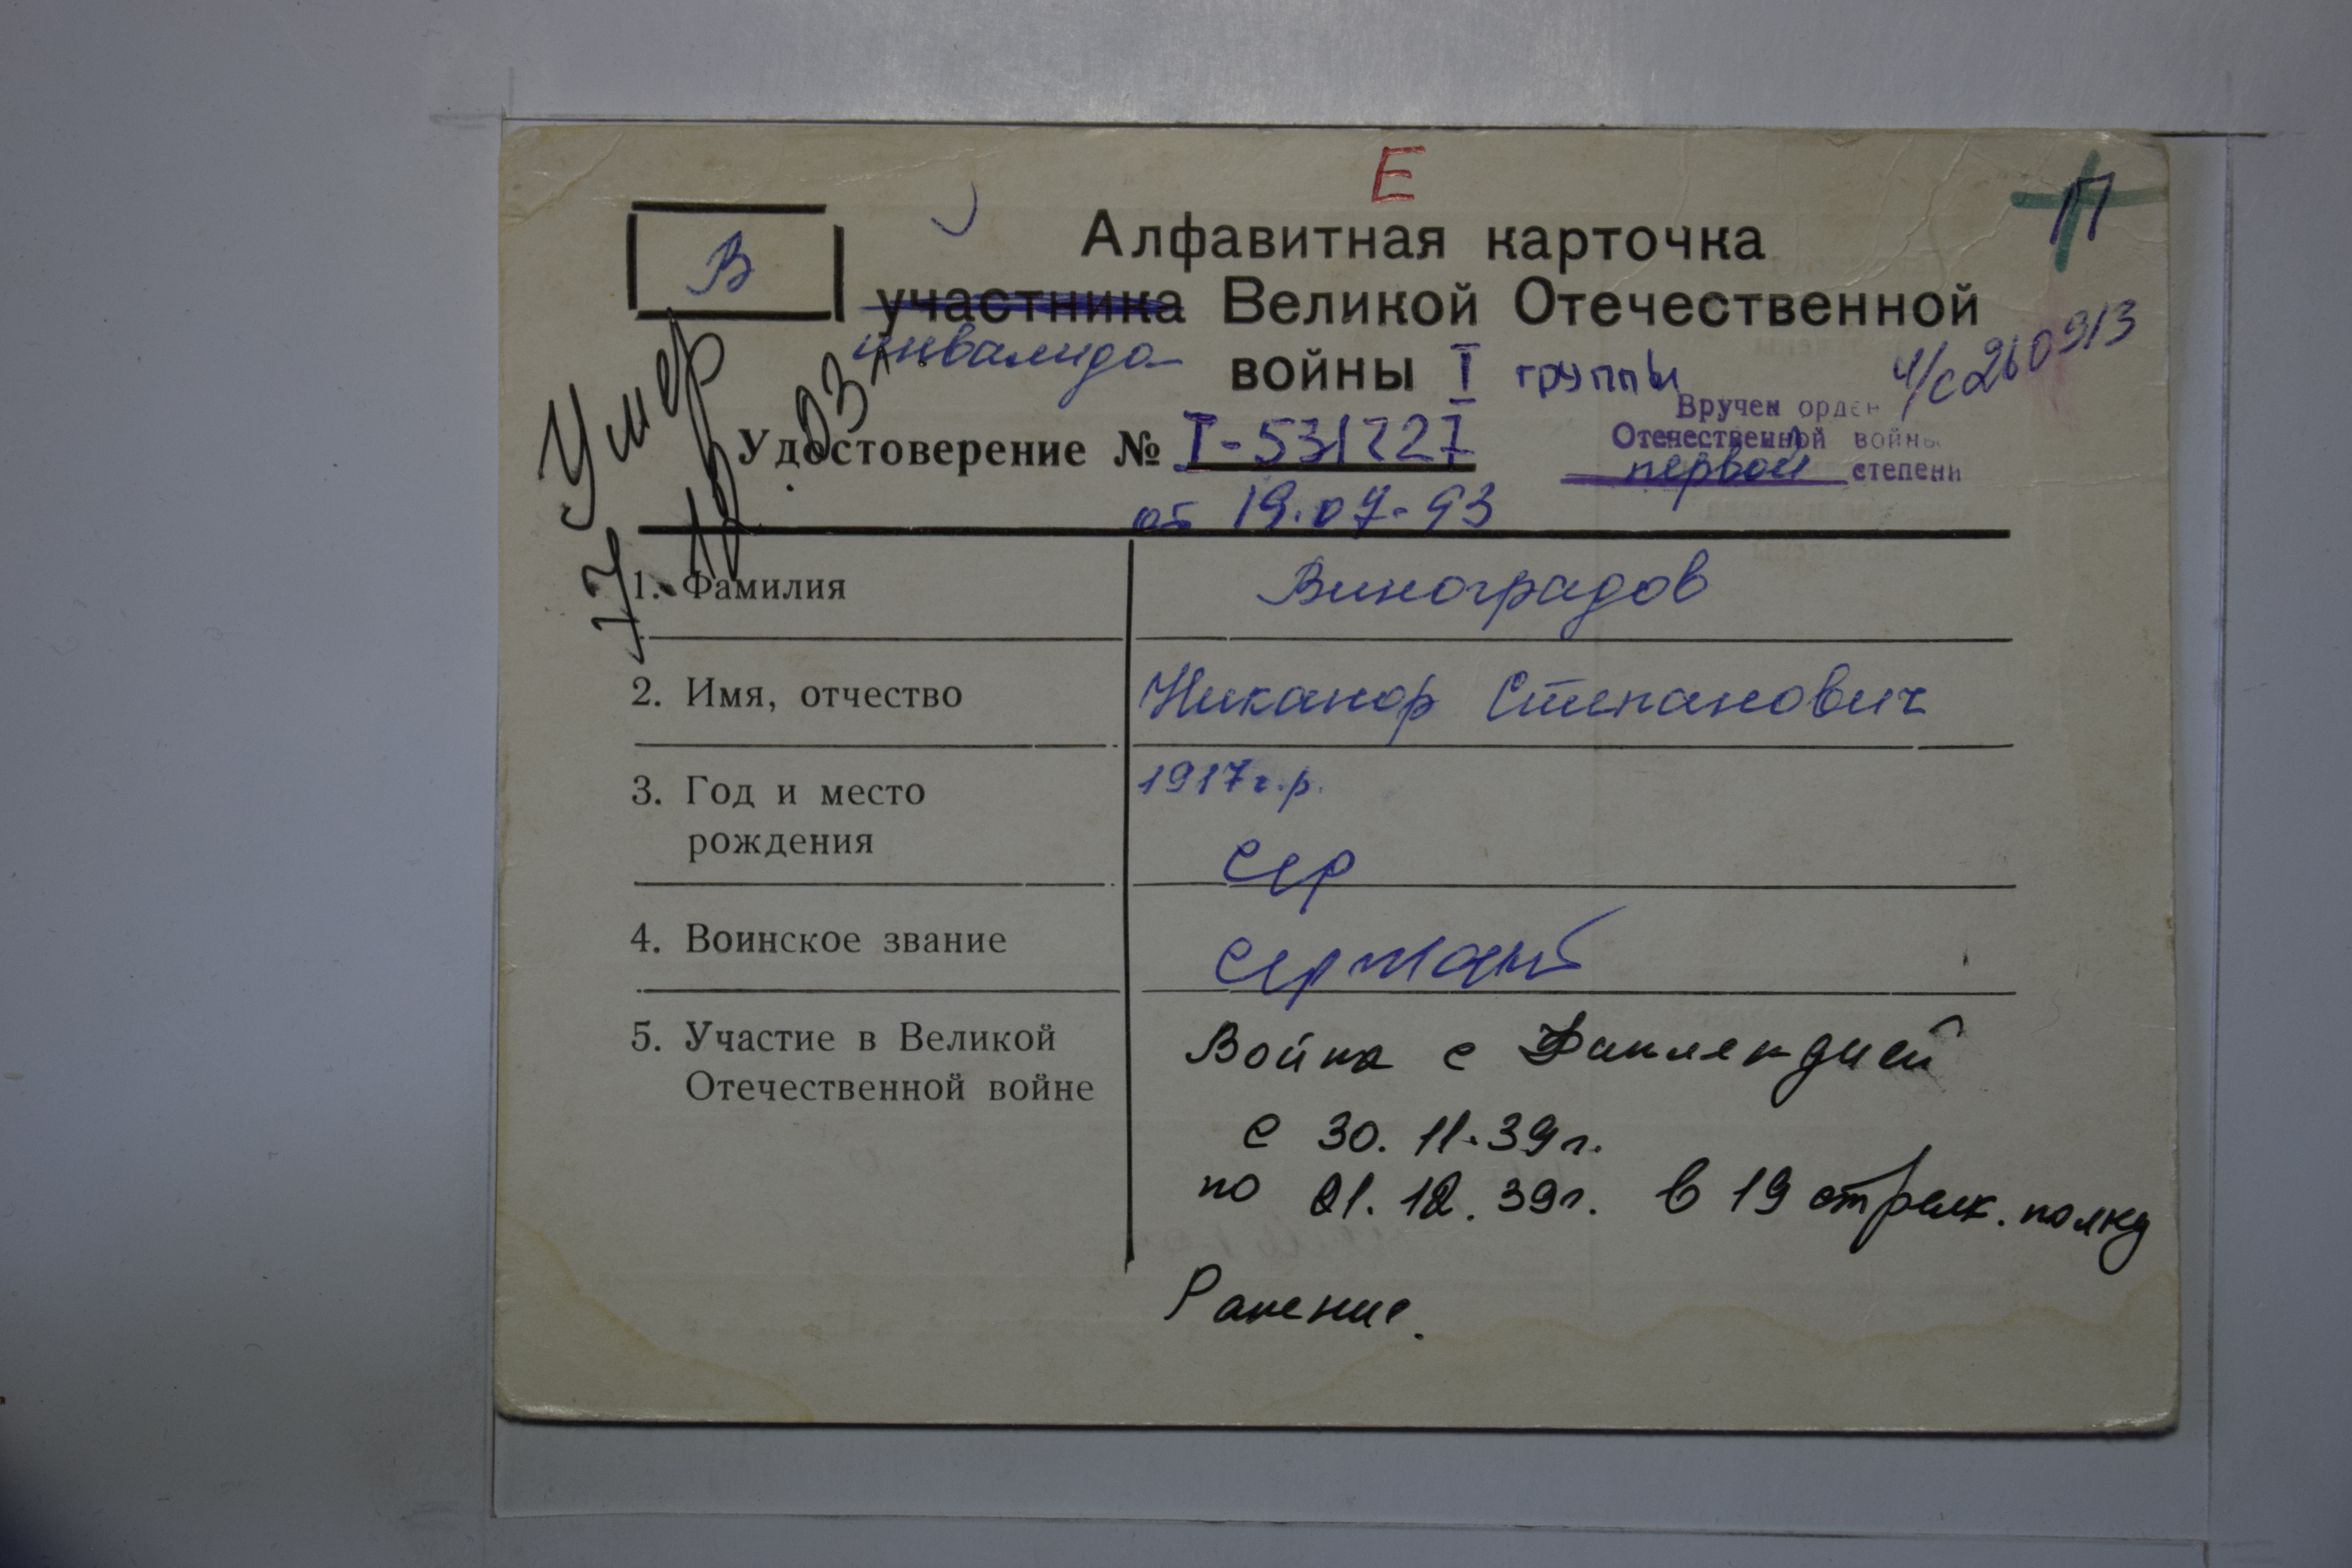 Е
В
Алфавитная карточка
П
участника Великой Отечественной
инвалида
войны I группы
ч/с 260913
Вручен орден
Отечественной войны
первой степени
Удостоверение № I-531227
от 19.07.93
Умер
1. Фамилия Виноградов
2. Имя, отчество Никанор Степанович
3. Год и место 1917г.р.
рождения сер
4. Воинское звание сержант
5. Участие в Великой Война с Финляндией
Отечественной войне
с 30.11.39г.
по 21.12.39г. в 19 стрелк. полку
Ранение.